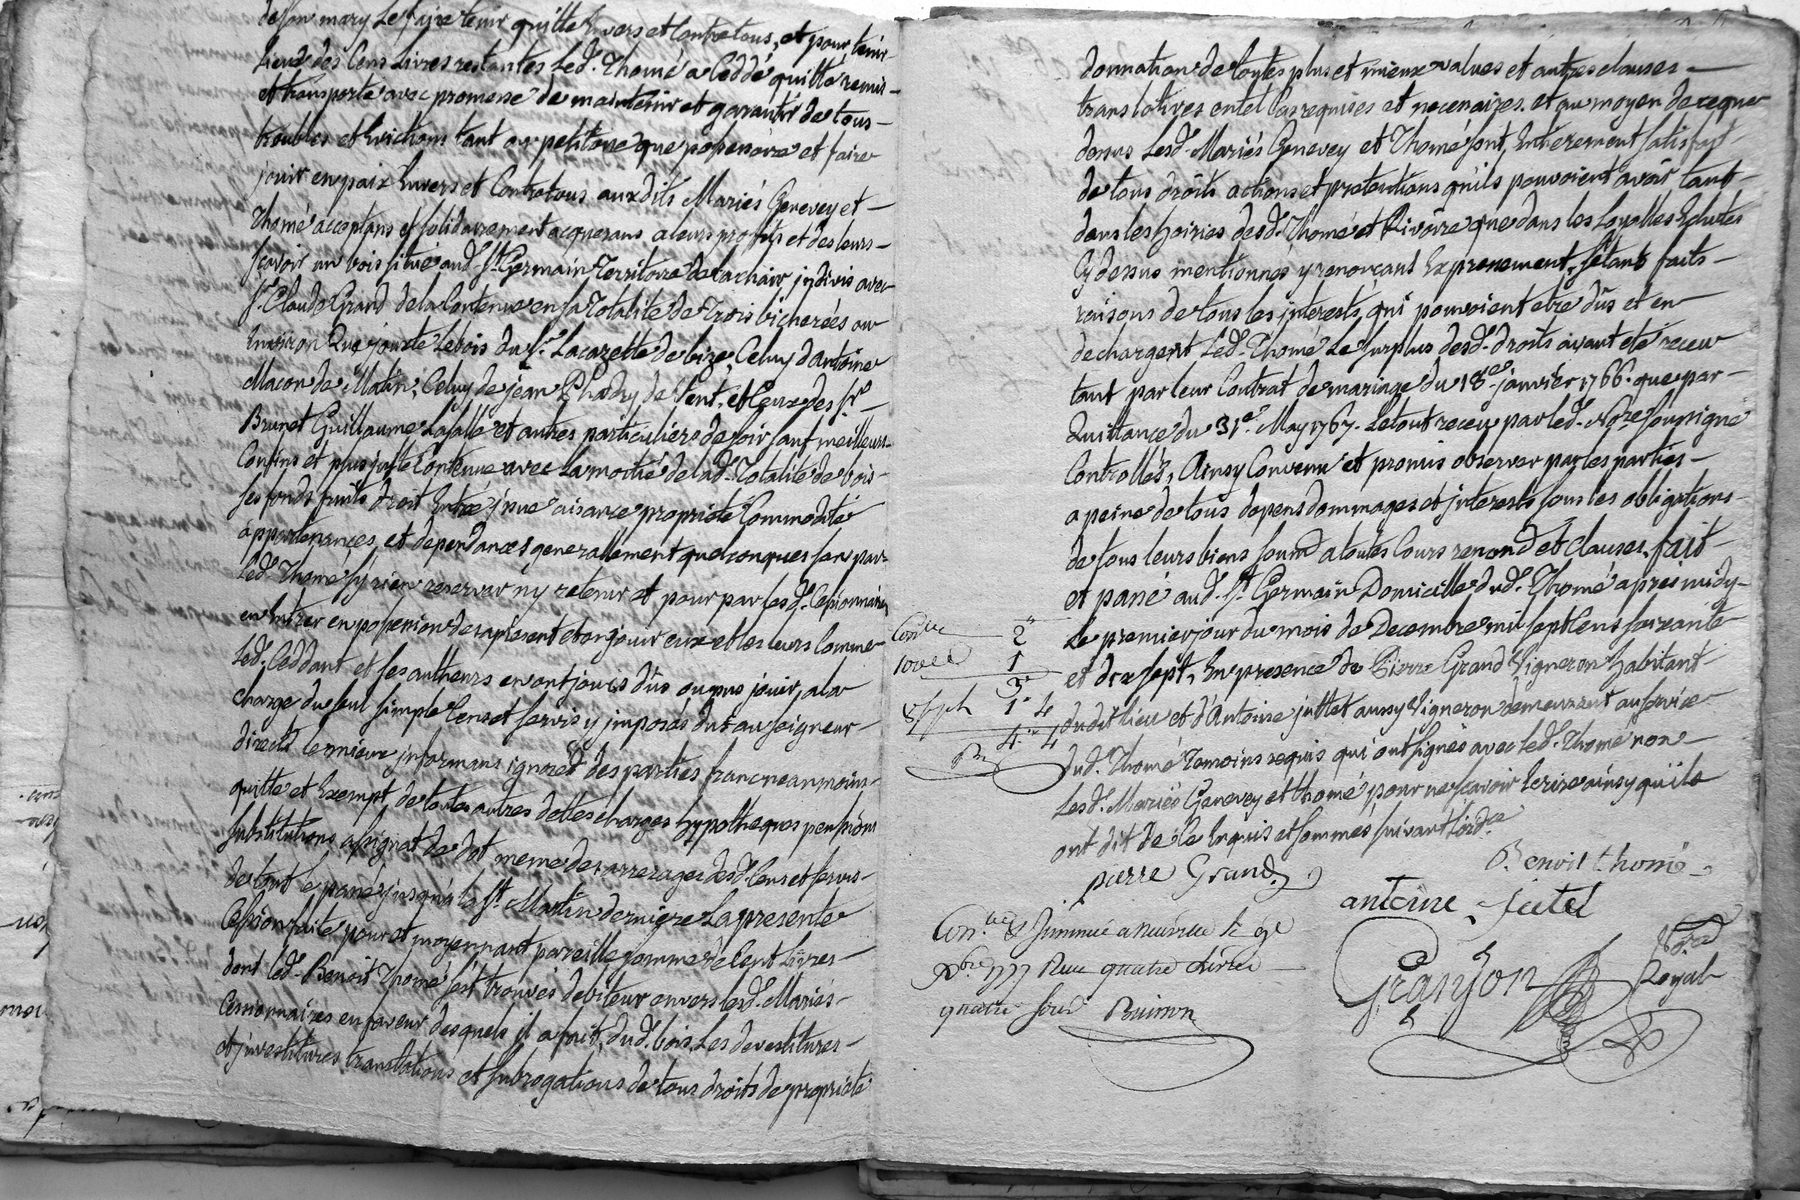 de son mary le faire tenir quitte Envers et Contre tous, et pour tenir
Lieu des Cens Livres restantes Led. Thomé a Ceddé quitté remis
et transporté avec promesse de maintenir et garantir de tous
troubles et Evictions tant au petitoire que possessoire et faire
jouir en paix Envers et Contre tous auxdits Mariés Genevey et
Thomé acceptans et solidairement acquerans a leurs proffits et des leurs
sçavoir un bois situé aud. St. Germain Territoire de Lachair, jndivis avec
Sr. Claude Grand de la Contenue en sa Totalité de Trois bicherées ou
Environ Que jouxte Le bois du Sr. Lacozette de bize, Celuy d'antoine
Macon de Matin, Celuy de jean Phadry de Vent, et Ceux des Srs.
Brunet Guillaume Lafalle et autres particuliers de soir sauf meilleurs
Confins et plus juste Contenue avec La moitié de lad. Totalité de bois
ses fonds fruits droit Entrée jssue aisance proprieté Commodité
appartenances et dependances generallement quelconques sans par
Led. Thomé s'y rien reserver ny retenir et pour par lesd. Cessionnaires
en Entrer en possession des apresent et en jouir eux et les leurs Comme
Led. Ceddant et ses autheurs en ont jouis dûs ou pus jouir, a la
charge du seul simple Cens et servis y jmposés dus au seigneur
direct le mieux jnformans ignoré des parties franc neanmoins
quitte et Exempt de toutes autres dettes charges hypotheques pensions
substitutions assignat de dot meme des arrerages desd. Cens et servis
de tout le passé jusqu'a la St. Martin derniere La presente
Cession faite pour et moyennant pareille somme de Cent Livres
dont Led. Benoit Thomé s'est trouvés debiteur envers lesd. Mariés
Cessionnaires en faveur desquels jl a fait dud. bois, Les devestitures
et jnvestitures translations et subrogations de tous droits de proprieté
donnation de toutes plus et mieux values et autres clauses
translatives en tel Cas requises et necessaires. et au moyen de ce que
dessus Lesd. Mariés Genevey et Thomé sont Entierement satisfait
de tous droits actions et pretentions qu'ils pouvoient avoir tant
dans les hoiries desd. Thomé et Rivoire que dans les Loyalles Echutes
Cy dessus mentionnés y renonçant Expressement, s'etant faits
raisons de tous les jnterests qui pouvoient etre dûs et en
dechargent Led. Thomé Le surplus desd. droits ayant eté receu
tant par leur Contrat de mariage du 18e. janvier 1766. que par
Quittance du 31e. May 1767. Le tout receu par led. Nore. soussigné
Controllés, Ainsy Convenu et promis observer par les parties
a peine de tous depens dommages et jnterests sous les obligations
de tous leurs biens soumd. a toutes Cours renond. et clauses. fait
et passé aud. St. Germain Domicille dud. Thomé apres midy
Le premier jour du mois de Decembre mil sept Cens soixante
et dix sept, En presence de Pierre Grand Vigneron habitant
du dit lieu et d'Antoine juttet aussy Vigneron demeurant au service
dud. Thomé temoins requis qui ont signés avec led. Thomé non
Lesd. Mariés Genevey et thomé pour ne sçavoir Ecrire ainsy qu'ils
ont dit de Ce Enquis et sommés suivant l'ordce
pierre Grand
Benoit thomé
antoine jutet
Granjon
Nore.
Royal
Conlle 2"
1
3"
1" 4
4" 4
Conllé
9bre 1777 Reçu quatre Livres
quatre sous